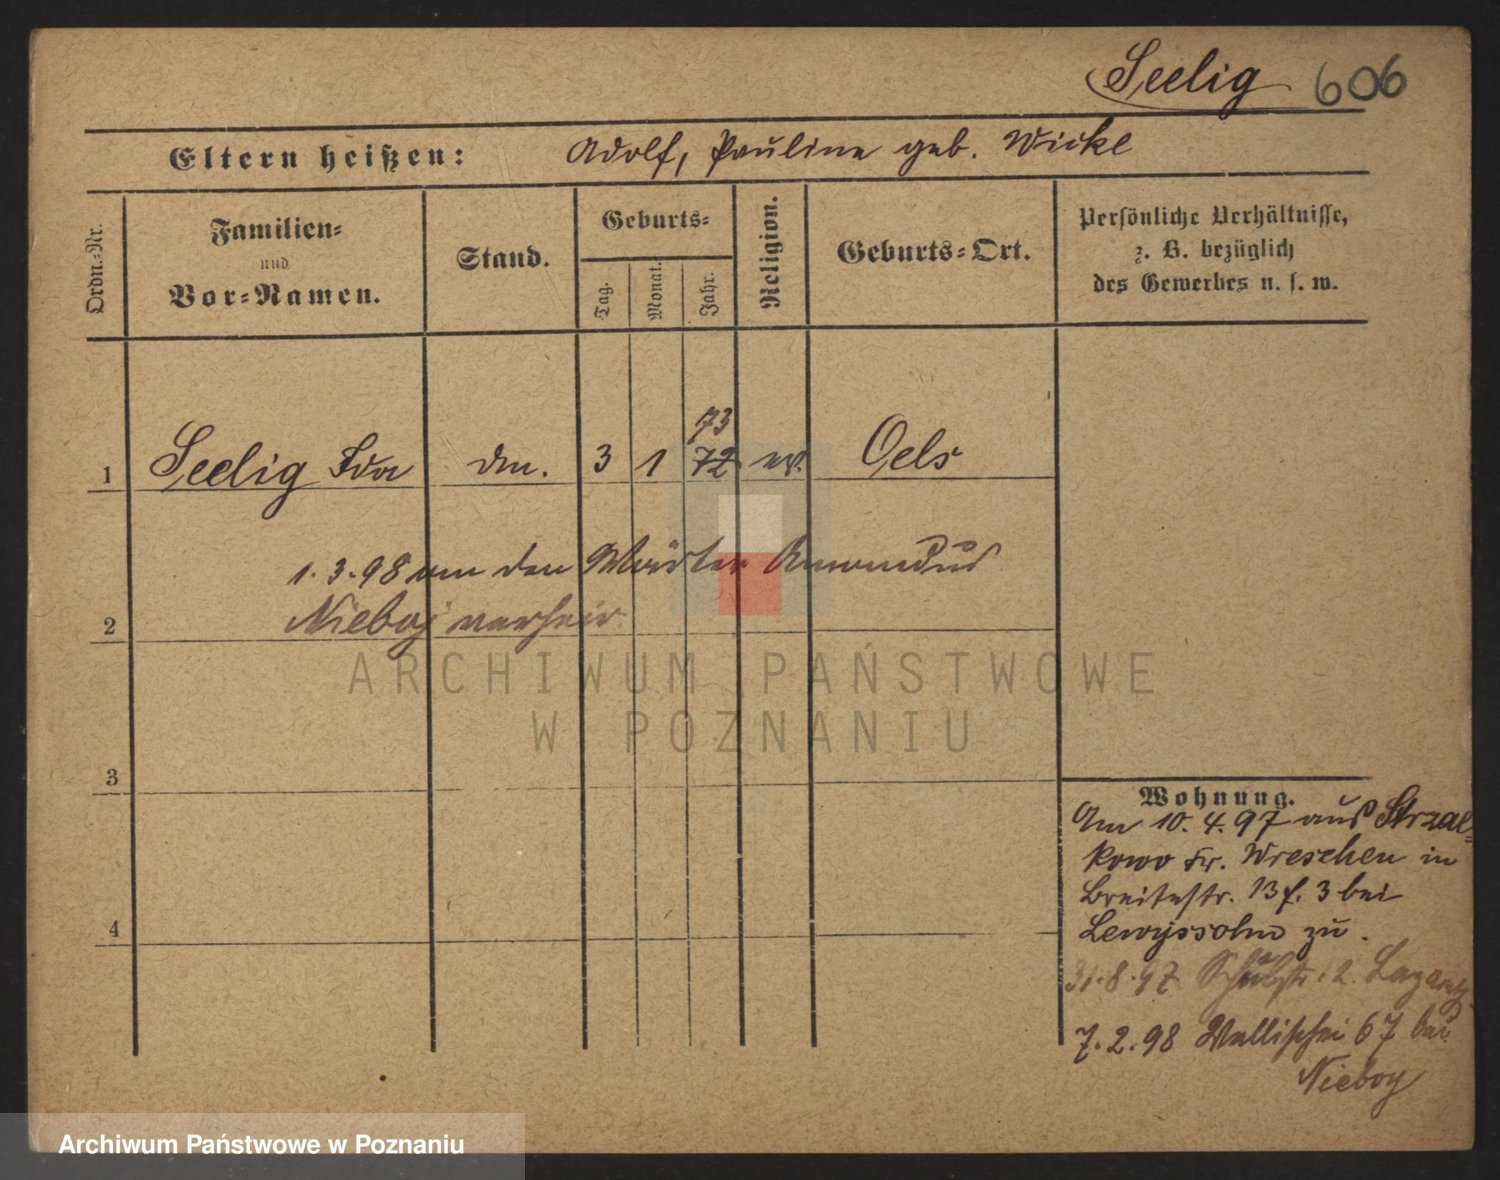 Seelig 606
Eltern heißen: Adolf, Pauline geb. Wickl
Ordn.-Nr.
Familien-
und
Vor-Namen.
Stand.
Geburts-
Tag.
Monat.
Jahr.
Religion.
Geburts-Ort.
Persönliche Verhältnisse,
z. B. bezüglich
des Gewerbes u. s. w.
73
1 Seelig Ida 3 1 72 ev. Oels
1.3.98 an den Wärter Amandus
Nieboj verheir.
2
3
4
Wohnung.
Am 10.4.97 aus Strzal-
kowo Kr. Wreschen in
Breitestr. 13 f. 3 bei
Lewyssohn zu.
31.8.97 2.
7.2.98 Wallischei 67 bei
Nieboy
ARCHIWUM PAŃSTWOWE
W POZNANIU
Archiwum Państwowe w Poznaniu